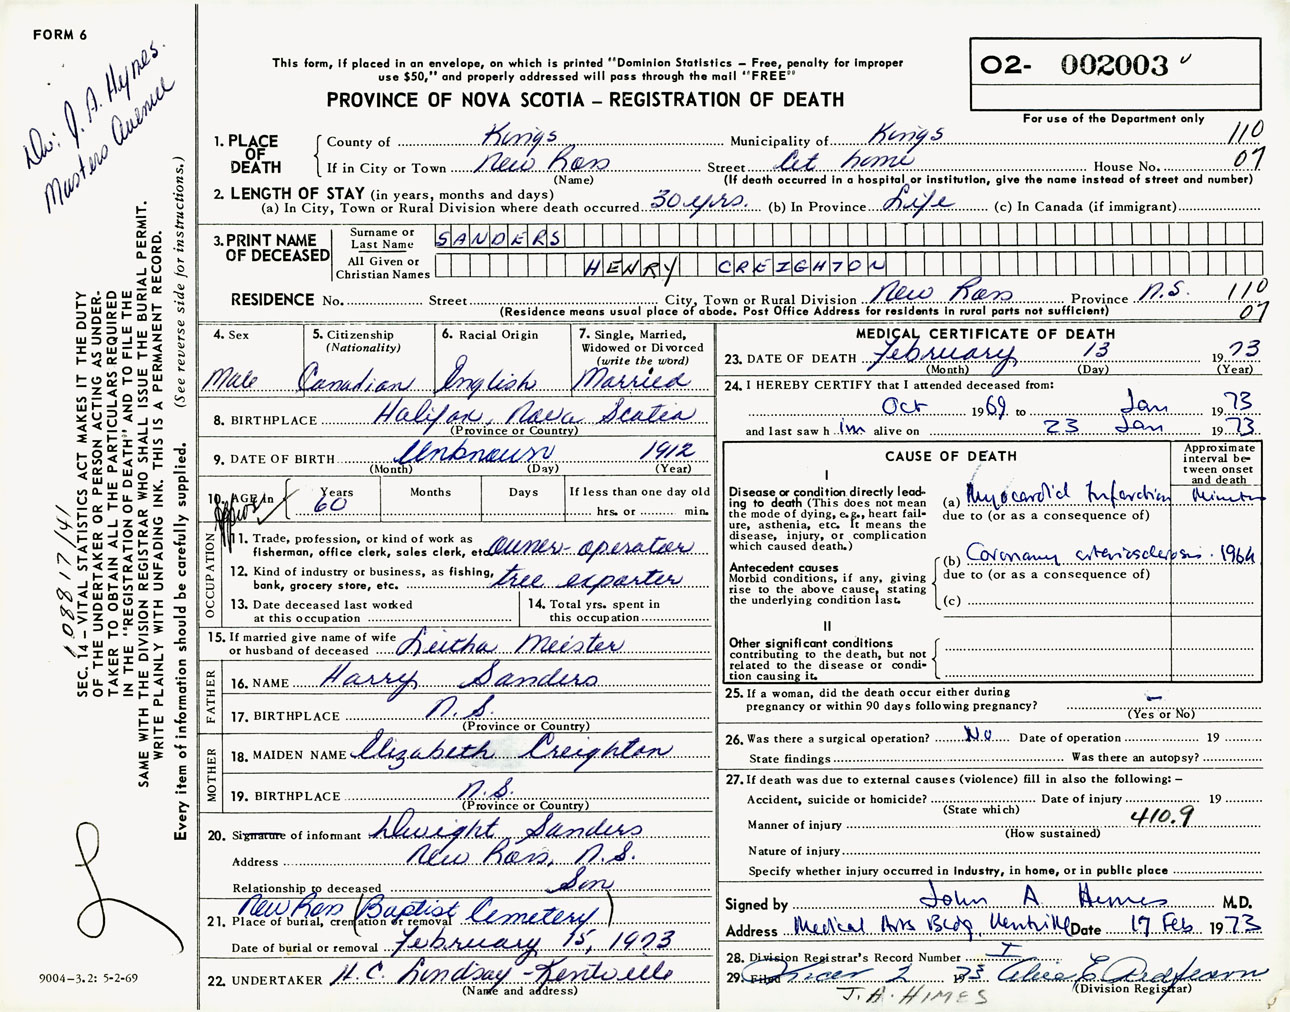 FORM 6
Div: J. A. Hynes.
Masters Avenue
This form, if placed in an envelope, on which is printed "Dominion Statistics – Free, penalty for improper
use $50," and properly addressed will pass through the mail "FREE"
PROVINCE OF NOVA SCOTIA – REGISTRATION OF DEATH
02- 002003
For use of the Department only
1. PLACE OF DEATH
County of Kings Municipality of Kings 110
If in City or Town New Ross Street At home House No. 07
(Name) (If death occurred in a hospital or institution, give the name instead of street and number)
2. LENGTH OF STAY (in years, months and days)
(a) In City, Town or Rural Division where death occurred 30 yrs. (b) In Province Life (c) In Canada (if immigrant)
3. PRINT NAME OF DECEASED
Surname or Last Name SANDERS
All Given or Christian Names HENRY CREIGHTON
RESIDENCE No. Street City, Town or Rural Division New Ross Province N.S. 110
(Residence means usual place of abode. Post Office Address for residents in rural parts not sufficient) 07
4. Sex Male
5. Citizenship (Nationality) Canadian
6. Racial Origin English
7. Single, Married, Widowed or Divorced (write the word) Married
8. BIRTHPLACE Halifax, Nova Scotia
(Province or Country)
9. DATE OF BIRTH Unknown 1912
(Month) (Day) (Year)
10. AGE in Years 60 Months Days If less than one day old
hrs. or min.
approx
OCCUPATION
11. Trade, profession, or kind of work as
fisherman, office clerk, sales clerk, etc. owner-operator
12. Kind of industry or business, as fishing,
bank, grocery store, etc. tree exporter
13. Date deceased last worked at this occupation
14. Total yrs. spent in this occupation
15. If married give name of wife
or husband of deceased Leitha Meister
FATHER
16. NAME Harry Sanders
17. BIRTHPLACE N.S.
(Province or Country)
MOTHER
18. MAIDEN NAME Elizabeth Creighton
19. BIRTHPLACE N.S.
(Province or Country)
20. Signature of informant Dwight Sanders
Address New Ross, N.S.
Relationship to deceased Son
21. Place of burial, cremation or removal New Ross (Baptist Cemetery)
Date of burial or removal February 15, 1973
22. UNDERTAKER H.C. Lindsay - Kentville
(Name and address)
MEDICAL CERTIFICATE OF DEATH
23. DATE OF DEATH February 13 1973
(Month) (Day) (Year)
24. I HEREBY CERTIFY that I attended deceased from:
Oct 1969 to Jan 1973
and last saw him alive on 23 Jan 1973
CAUSE OF DEATH
Approximate interval between onset and death
I
Disease or condition directly leading to death (This does not
mean the mode of dying, e.g., heart failure, asthenia, etc. It means the
disease, injury, or complication
which caused death.)
(a) Myocardial Infarction Minutes
due to (or as a consequence of)
Antecedent causes
Morbid conditions, if any, giving
rise to the above cause, stating
the underlying condition last.
(b) Coronary arteriosclerosis 1964
due to (or as a consequence of)
(c)
II
Other significant conditions
contributing to the death, but not
related to the disease or condition causing it.
25. If a woman, did the death occur either during
pregnancy or within 90 days following pregnancy? –
(Yes or No)
26. Was there a surgical operation? No Date of operation 19
State findings Was there an autopsy?
27. If death was due to external causes (violence) fill in also the following: –
Accident, suicide or homicide? Date of injury 19
(State which)
Manner of injury 410.9
(How sustained)
Nature of injury
Specify whether injury occurred in industry, in home, or in public place
Signed by John A Himes M.D.
Address Medical Arts Bldg Kentville Date 17 Feb 1973
28. Division Registrar's Record Number I
29. Filed 2 1973
(Division Registrar)
J. A. HIMES
SEC. 14 – VITAL STATISTICS ACT MAKES IT THE DUTY
OF THE UNDERTAKER OR PERSON ACTING AS UNDER-
TAKER TO OBTAIN ALL THE PARTICULARS REQUIRED
IN THE "REGISTRATION OF DEATH" AND TO FILE THE
SAME WITH THE DIVISION REGISTRAR WHO SHALL ISSUE THE BURIAL PERMIT.
WRITE PLAINLY WITH UNFADING INK. THIS IS A PERMANENT RECORD.
Every item of information should be carefully supplied. (See reverse side for instructions.)
9004-3.2: 5-2-69